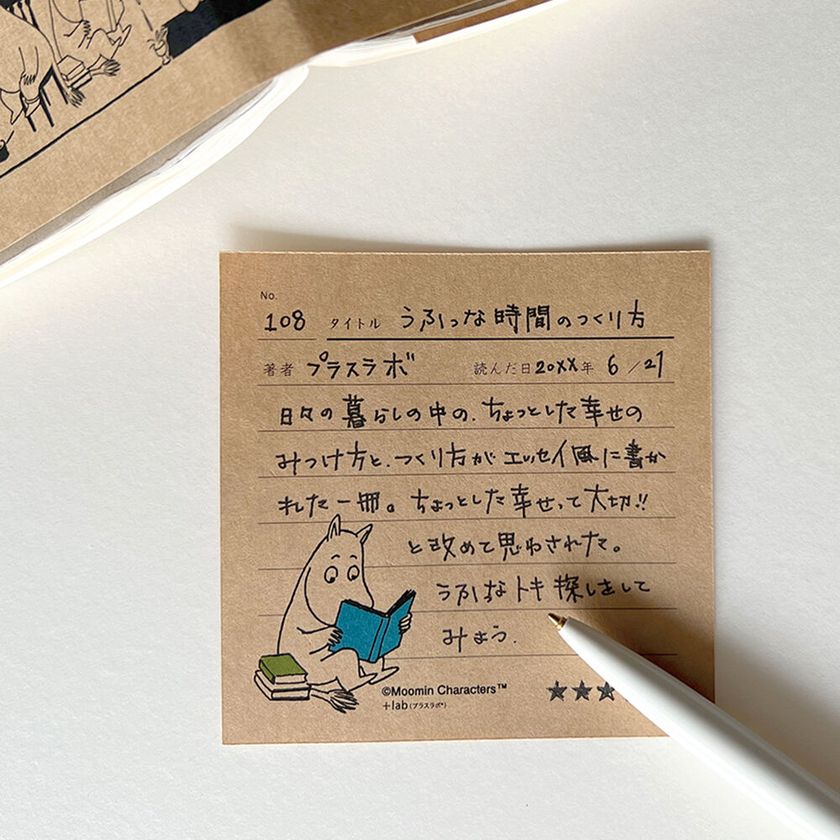 No.
108 タイトル うふっな時間のつくり方
著者 プラスラボ 読んだ日 20XX年 6/27
日々の暮らしの中の、ちょっとした幸せの
みつけ方と、つくり方がエッセイ風に書か
れた一冊。ちょっとした幸せって大切!!
と改めて思わされた。
うふっなトキ探しをして
みよう.
©Moomin Characters™
+lab(プラスラボ®)
★★★